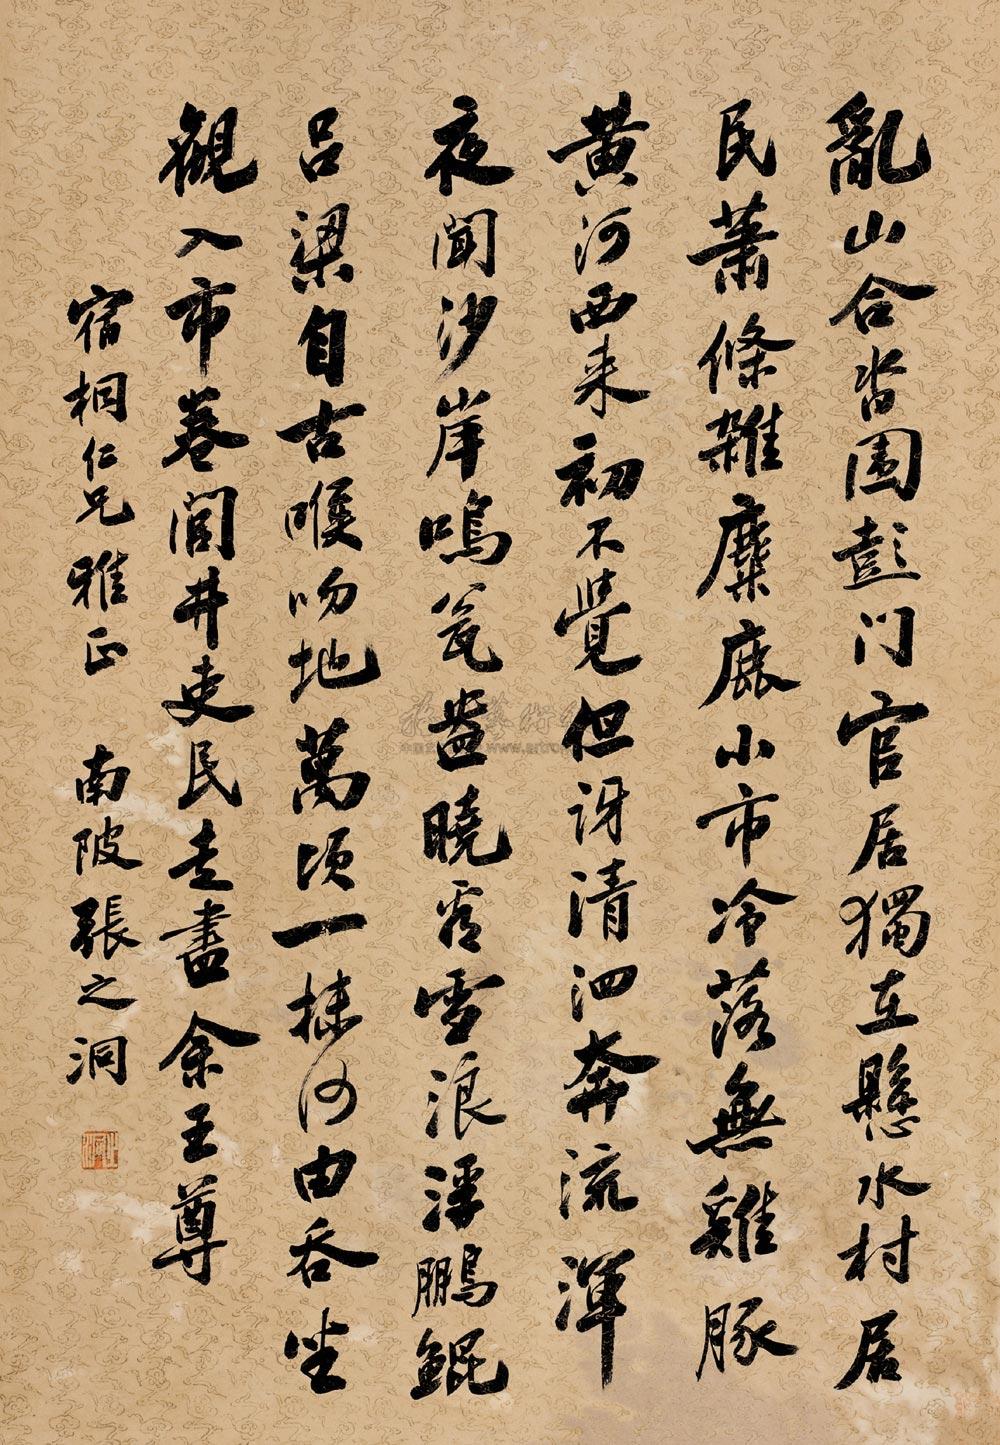 亂山合沓围彭门官居獨在懸水村居
民萧條雜麋鹿小市冷落無雞豚
黄河西来初不覺但訝清泗奔流渾
夜聞沙岸鳴瓮盎曉看雪浪浮鵬鯤
吕梁自古喉吻地萬頃一抹何由吞坐
觀入市卷闾井吏民走盡余王尊
宿桐仁兄雅正 南陂張之洞